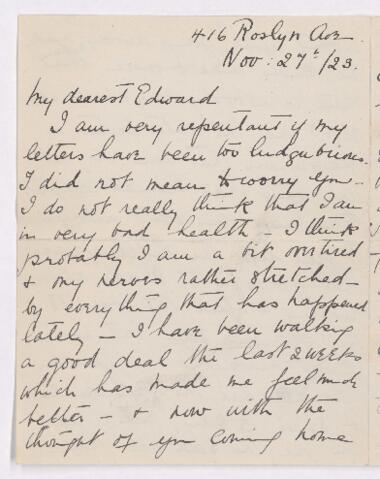 416 Roslyn Ave
Nov: 27t /23.
My dearest Edward
I am very repentant if my
letters have been too lugubrious.
I did not mean to worry you –
I do not really think that I am
in very bad health – I think
probably I am a bit overtired
& my nerves rather stretched –
by everything that has happened
lately – I have been walking
a good deal the last 2 weeks
which has made me feel much
better – & now with the
thought of you coming home